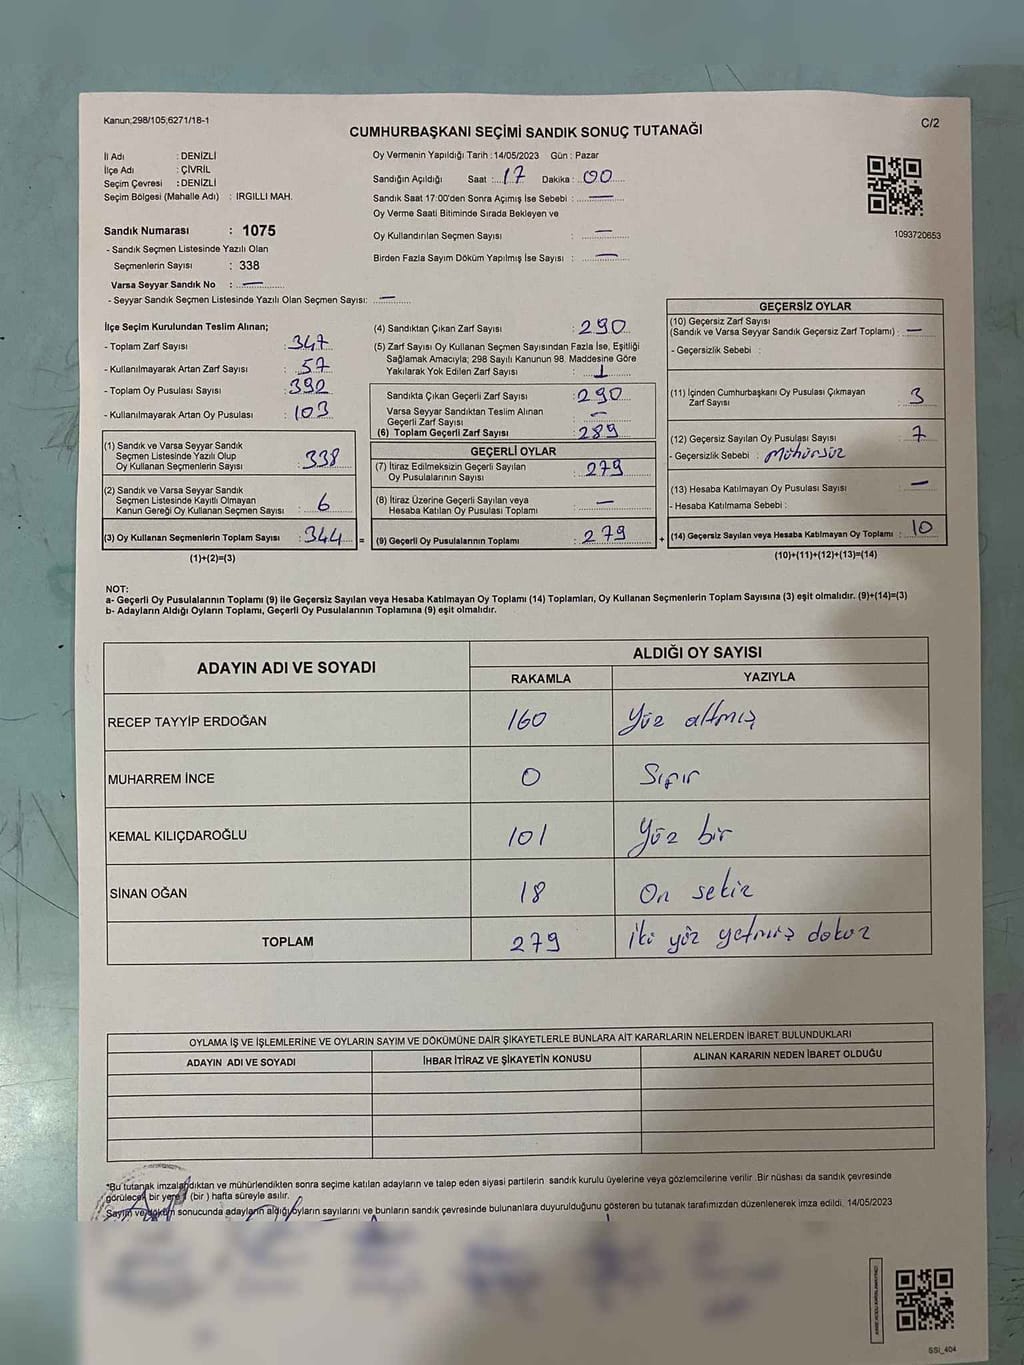 Kanun;298/105,6271/18-1
C/2
CUMHURBAŞKANI SEÇİMİ SANDIK SONUÇ TUTANAĞI
İl Adı : DENİZLİ
İlçe Adı : ÇİVRİL
Seçim Çevresi : DENİZLİ
Seçim Bölgesi (Mahalle Adı) : IRGILLI MAH.
Oy Vermenin Yapıldığı Tarih : 14/05/2023 Gün : Pazar
Sandığın Açıldığı Saat : 17 Dakika : 00
Sandık Saat 17:00'den Sonra Açımış İse Sebebi : —
Oy Verme Saati Bitiminde Sırada Bekleyen ve
Oy Kullandırılan Seçmen Sayısı : —
Birden Fazla Sayım Döküm Yapılmış İse Sayısı : —
1093720653
Sandık Numarası : 1075
- Sandık Seçmen Listesinde Yazılı Olan
Seçmenlerin Sayısı : 338
Varsa Seyyar Sandık No : —
- Seyyar Sandık Seçmen Listesinde Yazılı Olan Seçmen Sayısı: —
İlçe Seçim Kurulundan Teslim Alınan;
- Toplam Zarf Sayısı : 347
- Kullanılmayarak Artan Zarf Sayısı : 57
- Toplam Oy Pusulası Sayısı : 392
- Kullanılmayarak Artan Oy Pusulası : 103
(1) Sandık ve Varsa Seyyar Sandık
Seçmen Listesinde Yazılı Olup
Oy Kullanan Seçmenlerin Sayısı : 338
(2) Sandık ve Varsa Seyyar Sandık
Seçmen Listesinde Kayıtlı Olmayan
Kanun Gereği Oy Kullanan Seçmen Sayısı : 6
(3) Oy Kullanan Seçmenlerin Toplam Sayısı : 344 =
(1)+(2)=(3)
(4) Sandıktan Çıkan Zarf Sayısı : 290
(5) Zarf Sayısı Oy Kullanan Seçmen Sayısından Fazla İse, Eşitliği
Sağlamak Amacıyla; 298 Sayılı Kanunun 98. Maddesine Göre
Yakılarak Yok Edilen Zarf Sayısı : 1
Sandıkta Çıkan Geçerli Zarf Sayısı : 290
Varsa Seyyar Sandıktan Teslim Alınan
Geçerli Zarf Sayısı : —
(6) Toplam Geçerli Zarf Sayısı : 289
GEÇERLİ OYLAR
(7) İtiraz Edilmeksizin Geçerli Sayılan
Oy Pusulalarının Sayısı : 279
(8) İtiraz Üzerine Geçerli Sayılan veya
Hesaba Katılan Oy Pusulası Toplamı : —
(9) Geçerli Oy Pusulalarının Toplamı : 279 +
GEÇERSİZ OYLAR
(10) Geçersiz Zarf Sayısı
(Sandık ve Varsa Seyyar Sandık Geçersiz Zarf Toplamı) : —
- Geçersizlik Sebebi :
(11) İçinden Cumhurbaşkanı Oy Pusulası Çıkmayan
Zarf Sayısı : 3
(12) Geçersiz Sayılan Oy Pusulası Sayısı : 7
- Geçersizlik Sebebi : Mühürsüz
(13) Hesaba Katılmayan Oy Pusulası Sayısı : —
- Hesaba Katılmama Sebebi :
(14) Geçersiz Sayılan veya Hesaba Katılmayan Oy Toplamı : 10
(10)+(11)+(12)+(13)=(14)
NOT:
a- Geçerli Oy Pusulalarının Toplamı (9) ile Geçersiz Sayılan veya Hesaba Katılmayan Oy Toplamı (14) Toplamları, Oy Kullanan Seçmenlerin Toplam Sayısına (3) eşit olmalıdır. (9)+(14)=(3)
b- Adayların Aldığı Oyların Toplamı, Geçerli Oy Pusulalarının Toplamına (9) eşit olmalıdır.
ADAYIN ADI VE SOYADI
ALDIĞI OY SAYISI
RAKAMLA YAZIYLA
RECEP TAYYİP ERDOĞAN 160 Yüz altmış
MUHARREM İNCE 0 Sıfır
KEMAL KILIÇDAROĞLU 101 Yüz bir
SİNAN OĞAN 18 On sekiz
TOPLAM 279 İki yüz yetmiş dokuz
OYLAMA İŞ VE İŞLEMLERİNE VE OYLARIN SAYIM VE DÖKÜMÜNE DAİR ŞİKAYETLERLE BUNLARA AİT KARARLARIN NELERDEN İBARET BULUNDUKLARI
ADAYIN ADI VE SOYADI İHBAR İTİRAZ VE ŞİKAYETİN KONUSU ALINAN KARARIN NEDEN İBARET OLDUĞU
*Bu tutanak imzalandıktan ve mühürlendikten sonra seçime katılan adayların ve talep eden siyasi partilerin sandık kurulu üyelerine veya gözlemcilerine verilir. Bir nüshası da sandık çevresinde
görülecek bir yere 1 (bir ) hafta süreyle asılır.
Sayım ve döküm sonucunda adayların aldığı oyların sayılarını ve bunların sandık çevresinde bulunanlara duyurulduğunu gösteren bu tutanak tarafımızdan düzenlenerek imza edildi. 14/05/2023
SSi_404